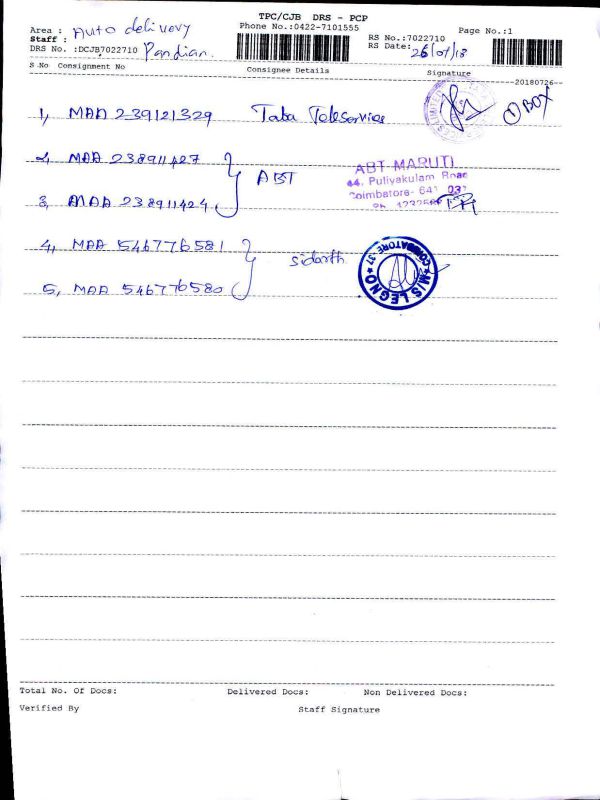 TPC/CJB DRS - PCP
Phone No.:0422-7101555
Page No.:1
Area : Auto delivery
Staff : Pandian
DRS No. :DCJB7022710
RS No.:7022710
RS Date: 26/07/18
S No Consignment No Consignee Details Signature
20180726
1, MAA 239121329 Tata Teleservice 1 BOX
2, MAA 238911427
ABT
3, MAA 238911424
ABT MARUTI
44, Puliyakulam Road
Coimbatore- 641 037
4, MAA 546776581
sidarth
5, MAA 546776580
M/S LEGNO
COIMBATORE-37
Total No. Of Docs: Delivered Docs: Non Delivered Docs:
Verified By Staff Signature